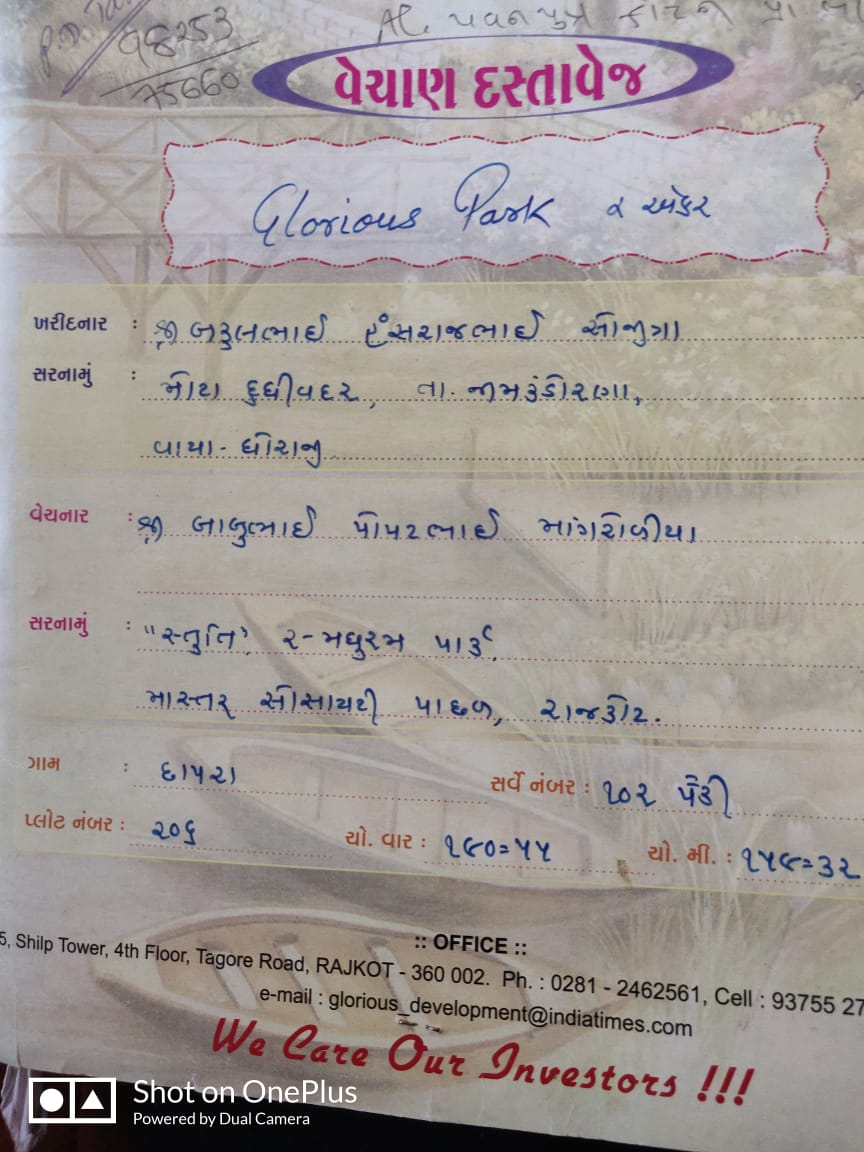 98253
75660
વેચાણ દસ્તાવેજ
Glorious Park ૨ એકર
ખરીદનાર : શ્રી બકુલભાઈ હંસરાજભાઈ સોજીત્રા
સરનામું : મોટા દુધીવદર, તા. જામકંડોરણા,
વાયા- ધોરાજી
વેચનાર : શ્રી બાબુભાઈ પોપટભાઈ માંગરોળીયા
સરનામું : "સ્તુતિ", ૨- મધુરમ પાર્ક,
માસ્તર સોસાયટી પાછળ, રાજકોટ.
ગામ : છાપરા સર્વે નંબર : ૧૦૨ પૈકી
પ્લોટ નંબર : ૨૦૬ ચો. વાર : ૧૯૦=૫૫ ચો. મી. : ૧૫૯=૩૨
:: OFFICE ::
5, Shilp Tower, 4th Floor, Tagore Road, RAJKOT - 360 002. Ph. : 0281 - 2462561, Cell : 93755 27
e-mail : glorious_development@indiatimes.com
We Care Our Investors !!!
Shot on OnePlus
Powered by Dual Camera